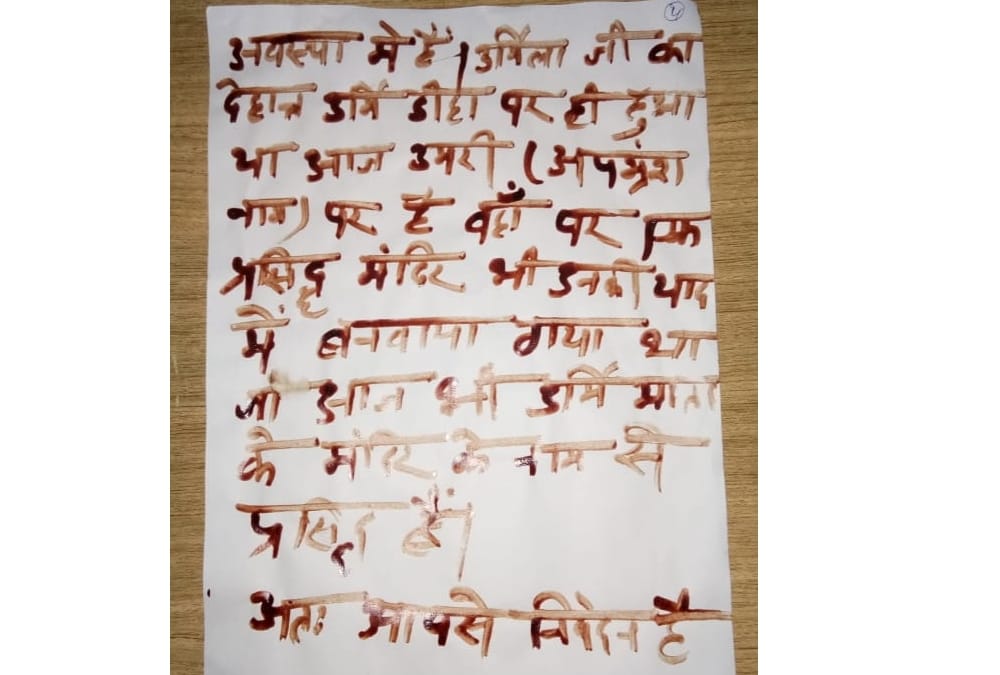 ५
अवस्था मे हैं। उर्मिला जी का
देहान्त उर्मि डीहा पर ही हुआ
था आज उमरी (अपभ्रंश
नाम) पर है वहाँ पर एक
प्रसिद्ध मंदिर भी उनकी याद
में बनवाया गया था
जो आज भी उर्मि माता
के मंदिर के नाम से
प्रसिद्द हैं।
अतः आपसे निवेदन है